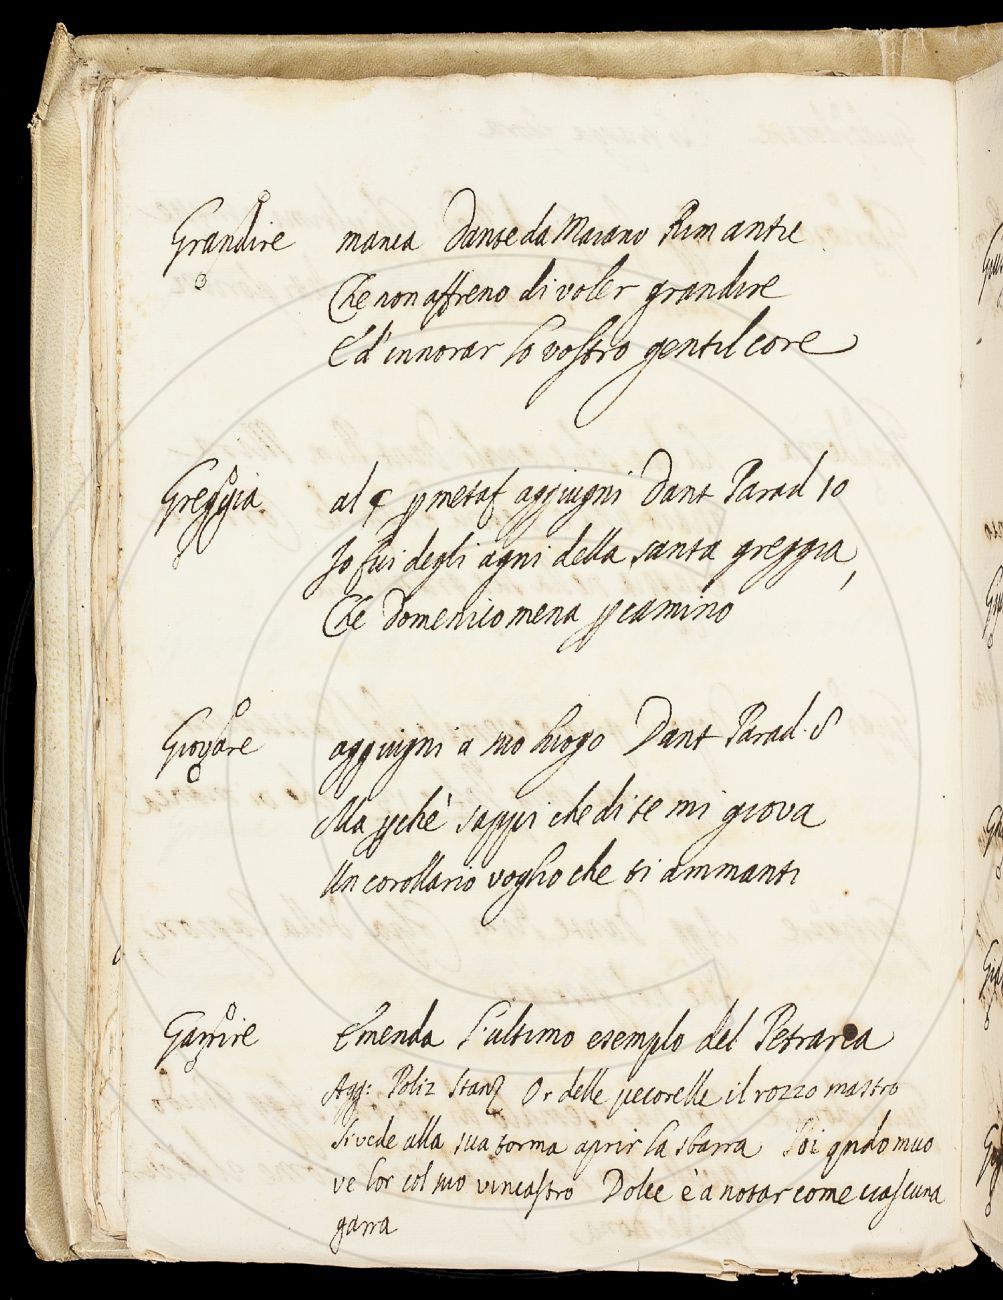 Grandire manca Dante da Maiano Rim antic
Che non affreno di voler grandire
E d'innorar lo vostro gentil core
Greggia al § p metaf aggiugni Dant Parad 10
Jo fui degli agni della santa greggia,
Che Domenico mena p camino
Giovare aggiugni a suo luogo Dant Parad. 8
Ma pchè sappi che di te mi giova
Un corollario voglio che ti ammanti
Garrire Emenda l'ultimo esempio del Petrarca
Agg: Poliz Stanz Or delle pecorelle il rozzo mastro
Si vede alla sua torma aprir la sbarra Poi qndo muo
ve lor col suo vincastro Dolce è a notar come ciascuna
garra